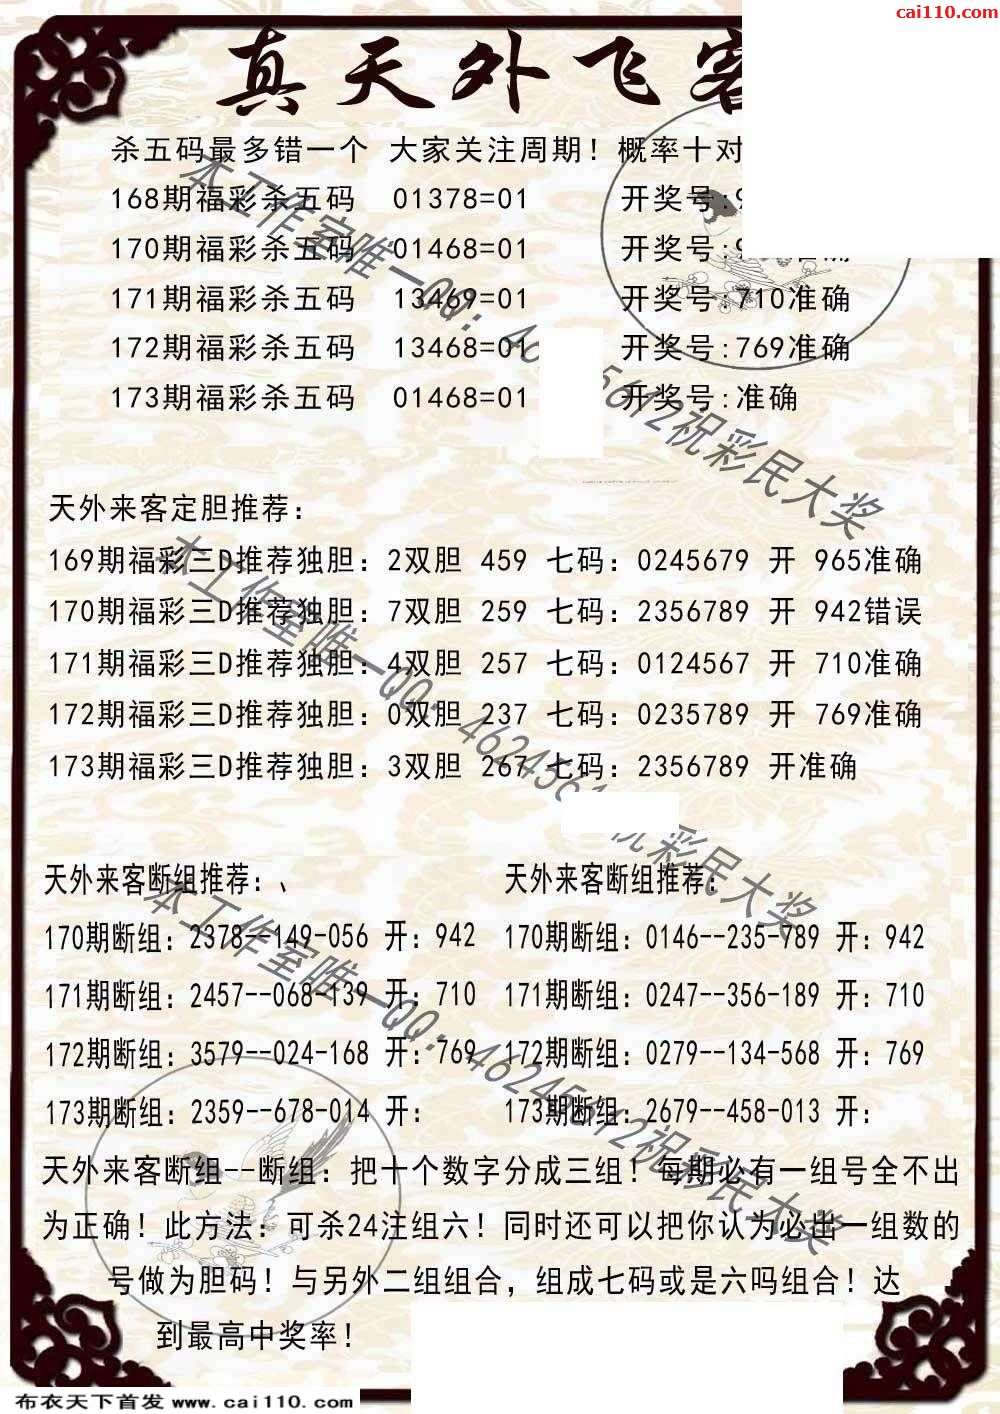 cai110.com
真天外飞客
杀五码最多错一个 大家关注周期！概率十对
168期福彩杀五码 01378=01 开奖号:9
170期福彩杀五码 01468=01 开奖号:9 准确
171期福彩杀五码 13469=01 开奖号:710准确
172期福彩杀五码 13468=01 开奖号:769准确
173期福彩杀五码 01468=01 开奖号:准确
本工作室唯一QQ: 46 5612祝彩民大奖
天外来客定胆推荐：
169期福彩三D推荐独胆：2双胆 459 七码：0245679 开 965准确
170期福彩三D推荐独胆：7双胆 259 七码：2356789 开 942错误
171期福彩三D推荐独胆：4双胆 257 七码：0124567 开 710准确
172期福彩三D推荐独胆：0双胆 237 七码：0235789 开 769准确
173期福彩三D推荐独胆：3双胆 267 七码：2356789 开准确
本工作室唯一QQ: 4624561 祝彩民大奖
天外来客断组推荐：、
170期断组：2378--149-056 开：942
171期断组：2457--068-139 开：710
172期断组：3579--024-168 开：769
173期断组：2359--678-014 开：
天外来客断组推荐：
170期断组：0146--235-789 开：942
171期断组：0247--356-189 开：710
172期断组：0279--134-568 开：769
173期断组：2679--458-013 开：
本工作室唯一QQ: 46245612祝彩民大奖
天外来客断组--断组：把十个数字分成三组！每期必有一组号全不出
为正确！此方法：可杀24注组六！同时还可以把你认为必出一组数的
号做为胆码！与另外二组组合，组成七码或是六吗组合！达
到最高中奖率！
布衣天下首发 www.cai110.com